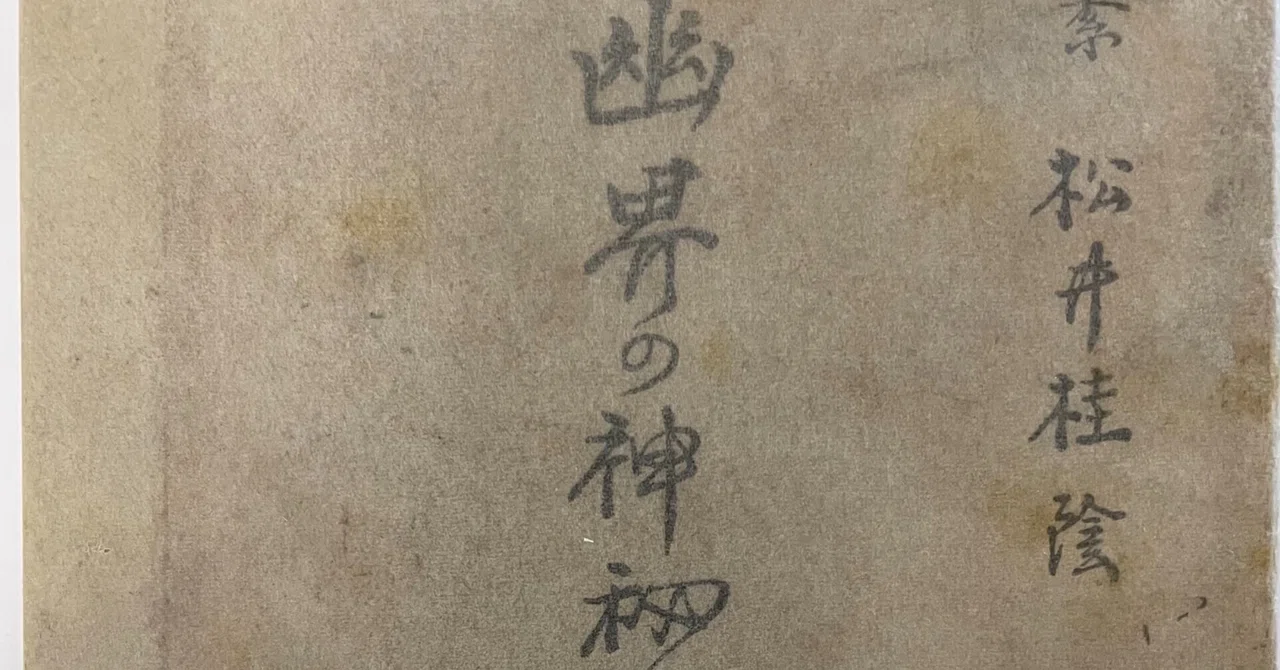 松井桂陰
幽界の神祕